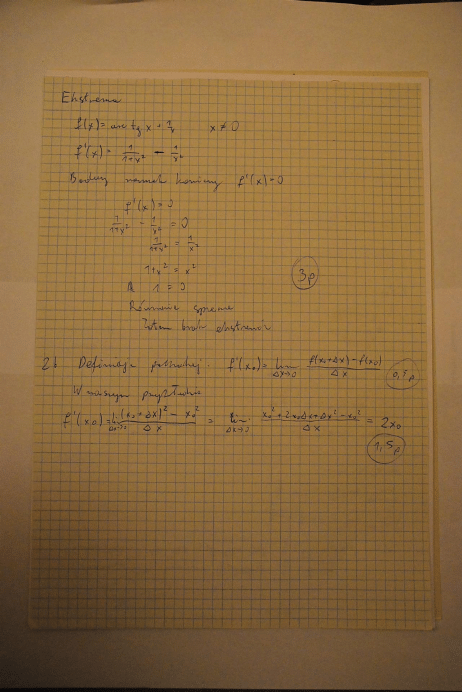 Ekstrema
f(x) = arc tg x + 1/x    x ≠ 0
f'(x) = 1/(1+x²) - 1/x²
Badamy warunek konieczny f'(x) = 0
f'(x) = 0
1/(1+x²) - 1/x² = 0
1/(1+x²) = 1/x²
1+x² = x²
1 = 0
3p
Równanie sprzeczne
Zatem brak ekstremów
2b Definicja pochodnej. f'(x₀) = lim Δx→0 (f(x₀+Δx) - f(x₀))/Δx    0,5p
W naszym przykładzie
f'(x₀) = lim Δx→0 ((x₀+Δx)² - x₀²)/Δx = lim Δx→0 (x₀² + 2x₀Δx + Δx² - x₀²)/Δx = 2x₀
1,5p